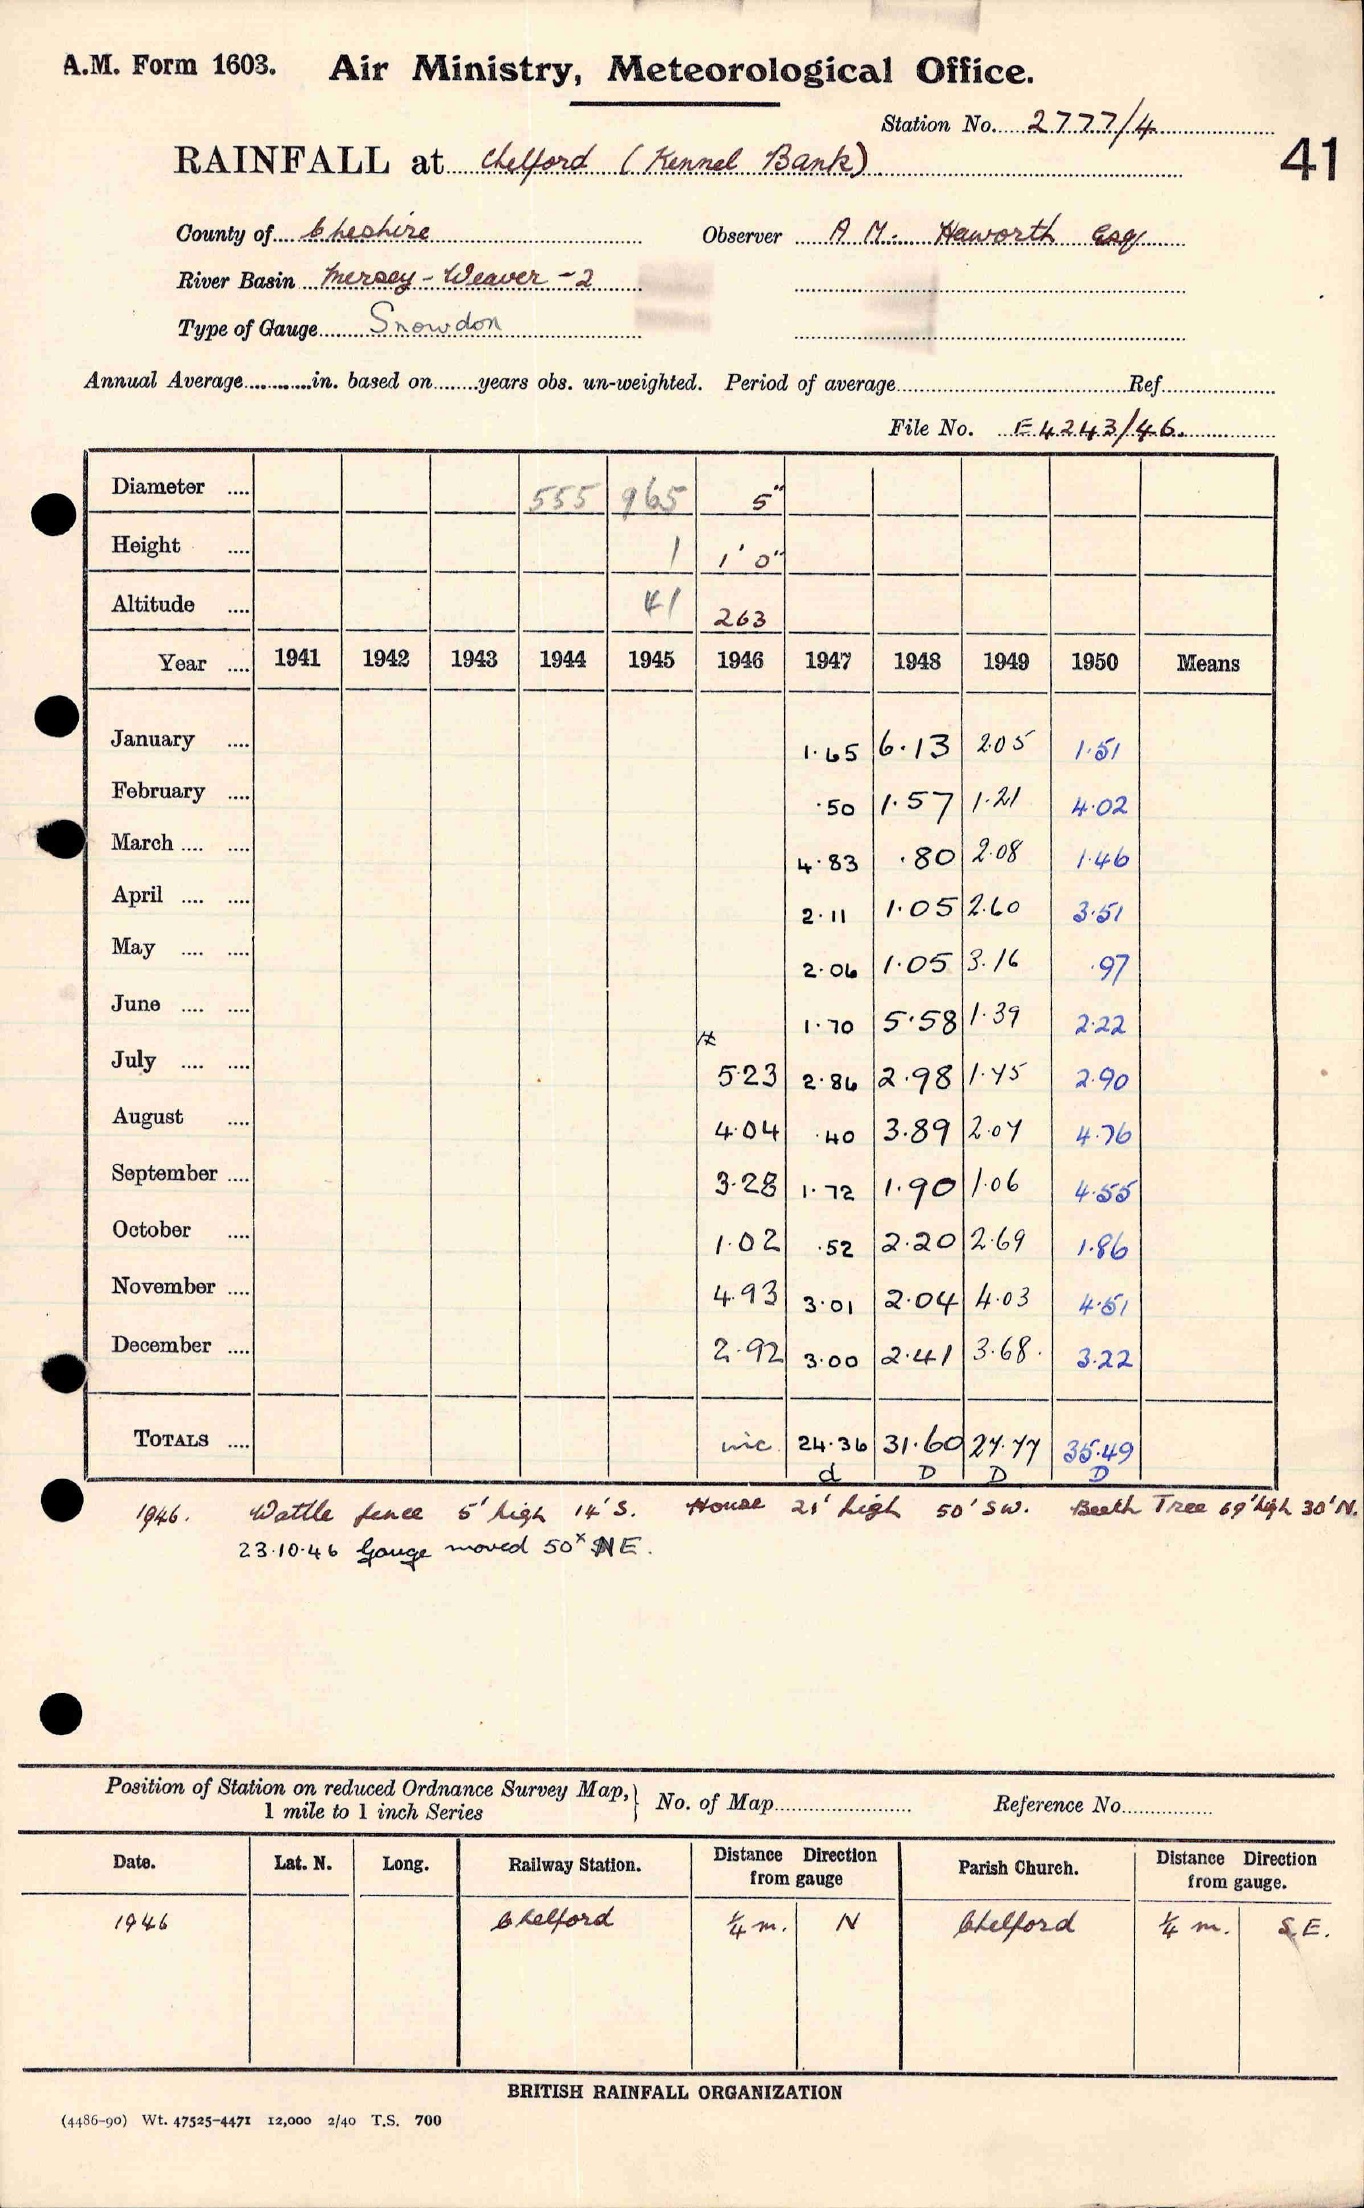 A.M. Form 1603. Air Ministry, Meteorological Office.
Station No. 2777/4
RAINFALL at Chelford (Kennel Bank)
41
County of Cheshire Observer A M. Haworth Esq
River Basin Mersey - Weaver - 2
Type of Gauge Snowdon
Annual Average in. based on years obs. un-weighted. Period of average Ref.
File No. E4243/46.
Diameter 555 965 5"
Height 1 1' 0"
Altitude 41 263
Year 1941 1942 1943 1944 1945 1946 1947 1948 1949 1950 Means
January 1.65 6.13 2.05 1.51
February .50 1.57 1.21 4.02
March 4.83 .80 2.08 1.46
April 2.11 1.05 2.60 3.51
May 2.06 1.05 3.16 .97
June 1.70 5.58 1.39 2.22
July 5.23 2.86 2.98 1.75 2.90
August 4.04 .40 3.89 2.07 4.76
September 3.28 1.72 1.90 1.06 4.55
October 1.02 .52 2.20 2.69 1.86
November 4.93 3.01 2.04 4.03 4.51
December 2.92 3.00 2.41 3.68. 3.22
TOTALS inc. 24.36 31.60 27.77 35.49
d D D D
1946. Wattle fence 5' high 14' S. House 21' high 50' SW. Beeth Tree 69' high 30' N.
23.10.46 Gauge moved 50x NE.
Position of Station on reduced Ordnance Survey Map, 1 mile to 1 inch Series } No. of Map Reference No.
Date. Lat. N. Long. Railway Station. Distance Direction from gauge Parish Church. Distance Direction from gauge.
1946 Chelford ¼ m. N Chelford ¼ m. S.E.
BRITISH RAINFALL ORGANIZATION
(4486-90) Wt. 47525-4471 12,000 2/40 T.S. 700